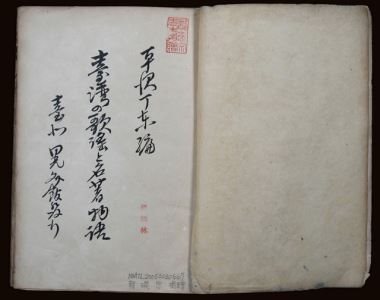 平沢丁東編
臺灣の歌謠と名著物語
臺北 晃文館発行